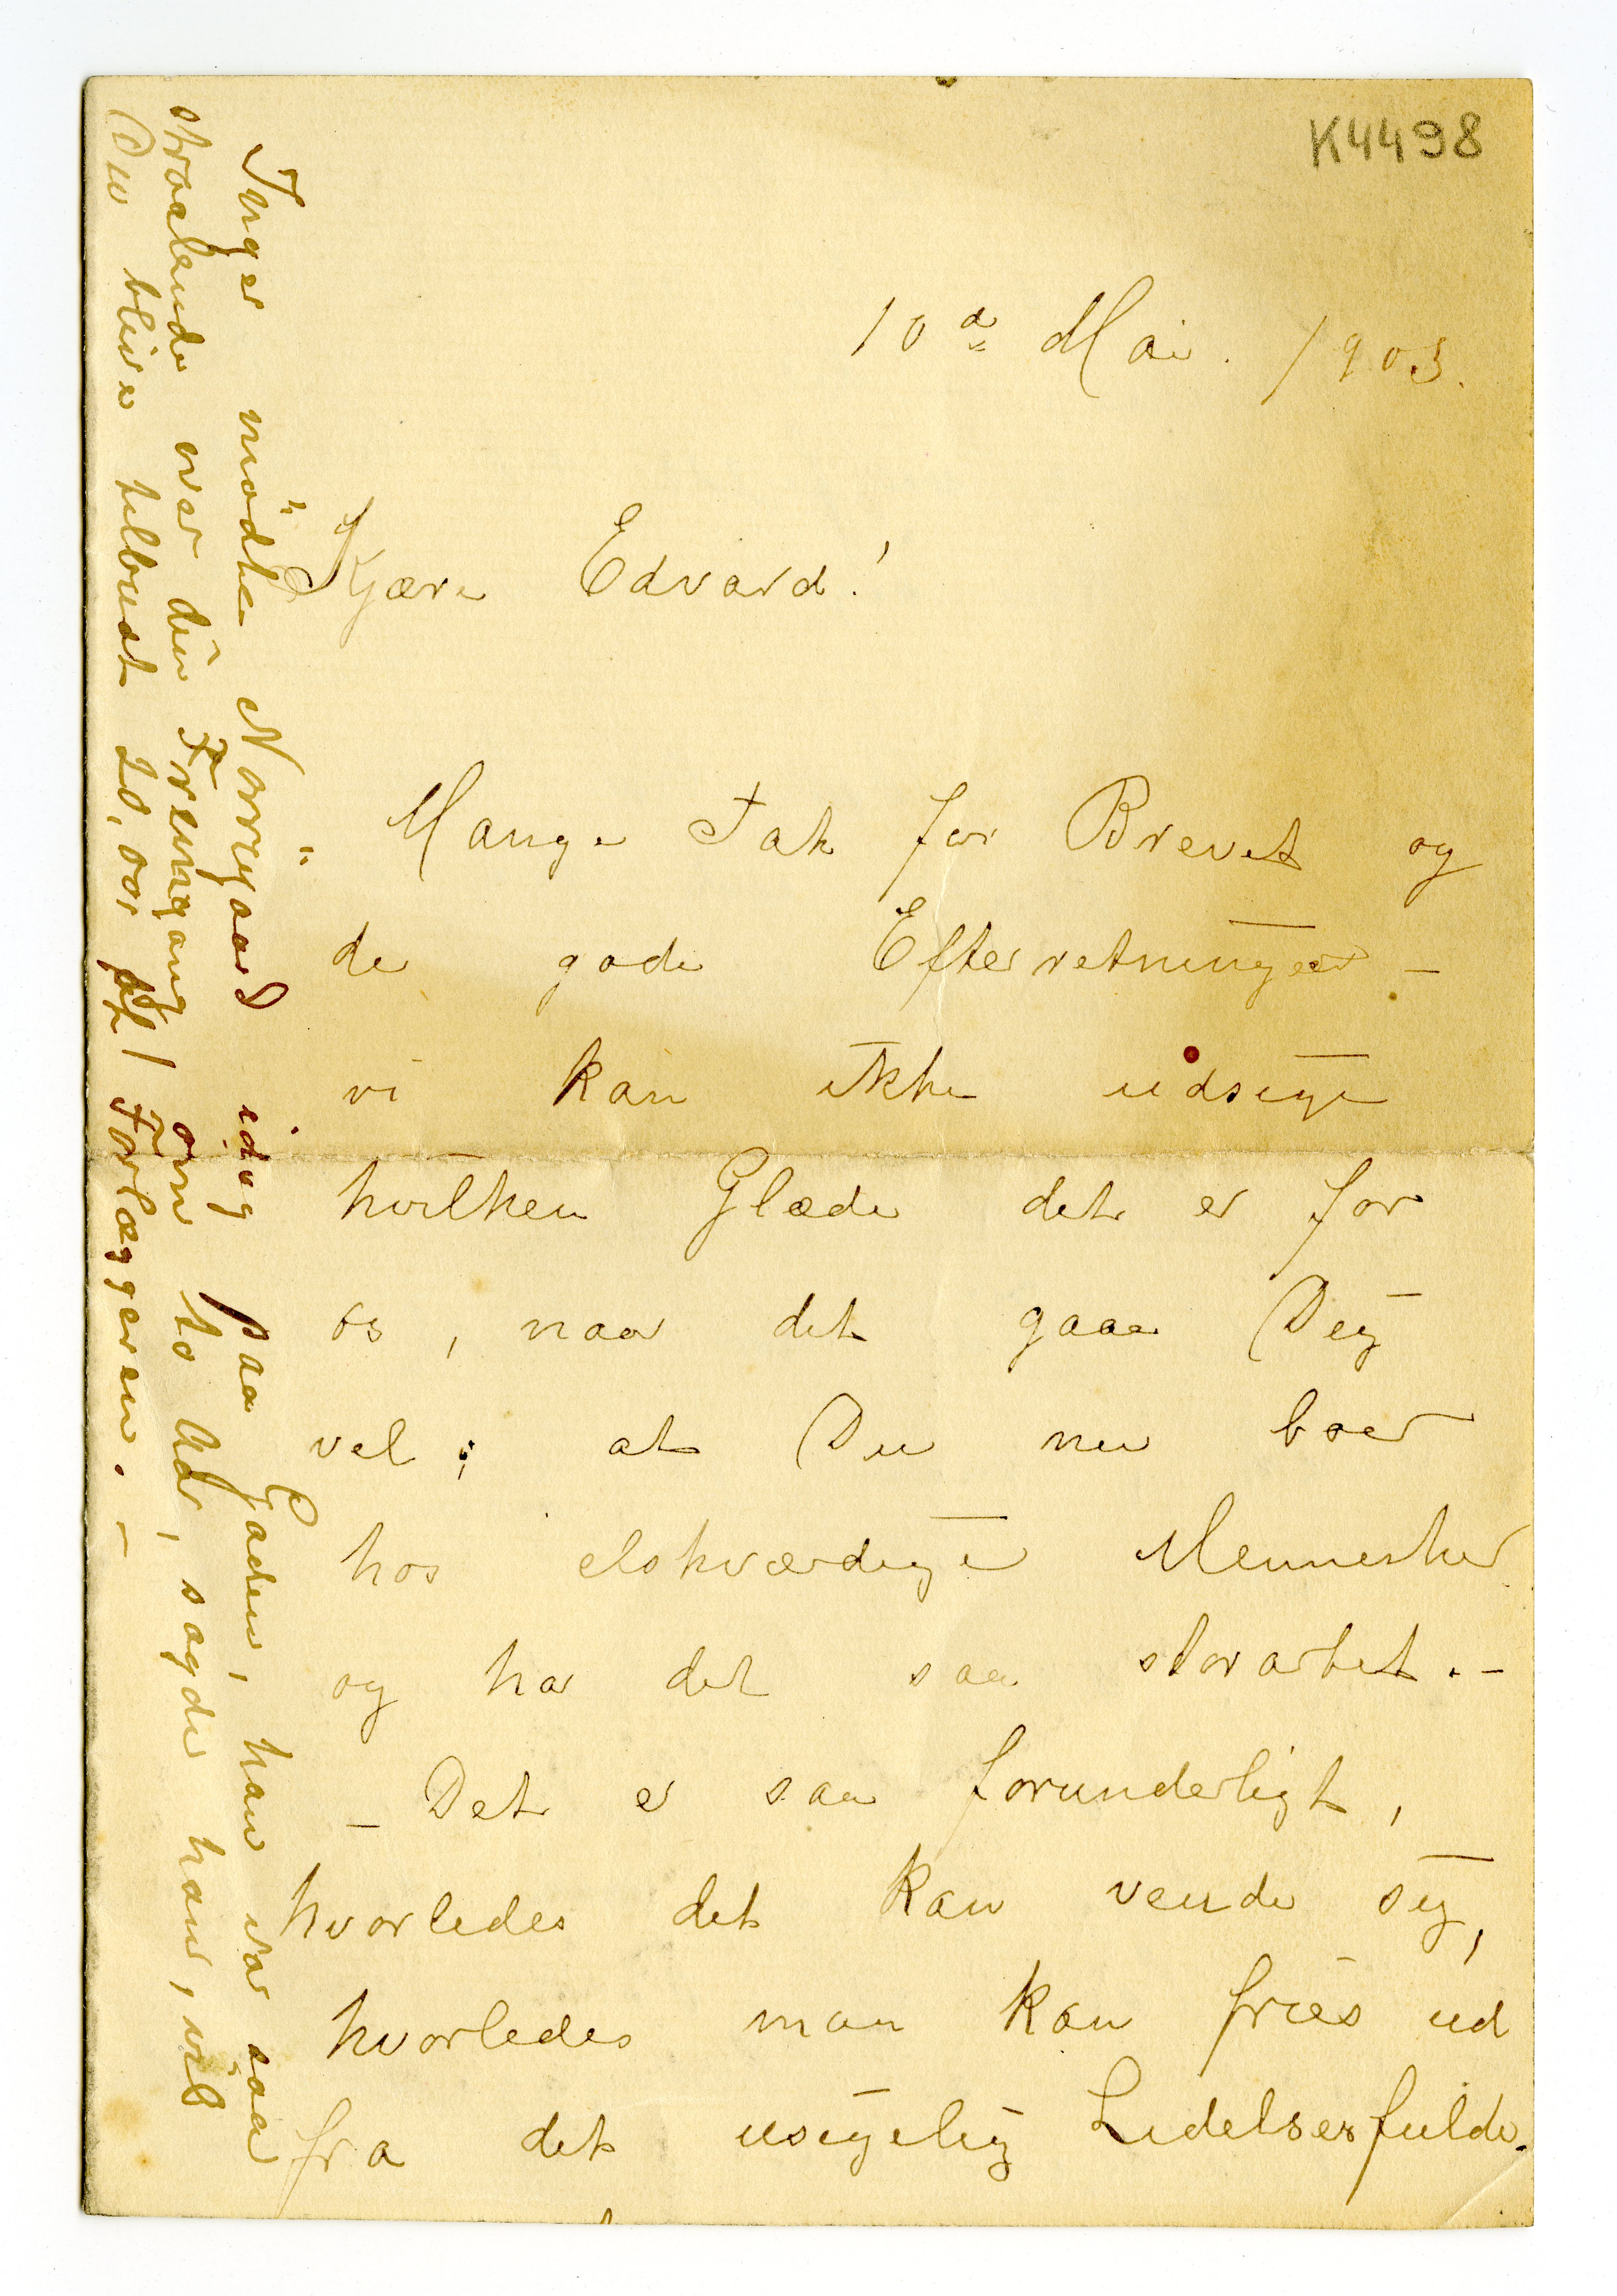 K4498
10de Mai. 1903.
Kjære Edvard!
Mange Tak for Brevet og
de gode Efterretninger –
vi kan ikke udsige
hvilken Glæde det er for
os, naar det gaar Dig
vel; at Du nu boer
hos elskværdige Mennesker
og har det saa storartet. –
– Det er saa forunderligt,
hvorledes det kan vende sig,
hvorledes man kan fries ud
fra det usigelig Lidelsesfulde.
Inger mödte Nörregaard idag paa Gaden, han var saa
straalende over din Fremgang / om to Aar, sagde han, vil
Du blive tilbudt 20,000 af / Forlæggeren. –